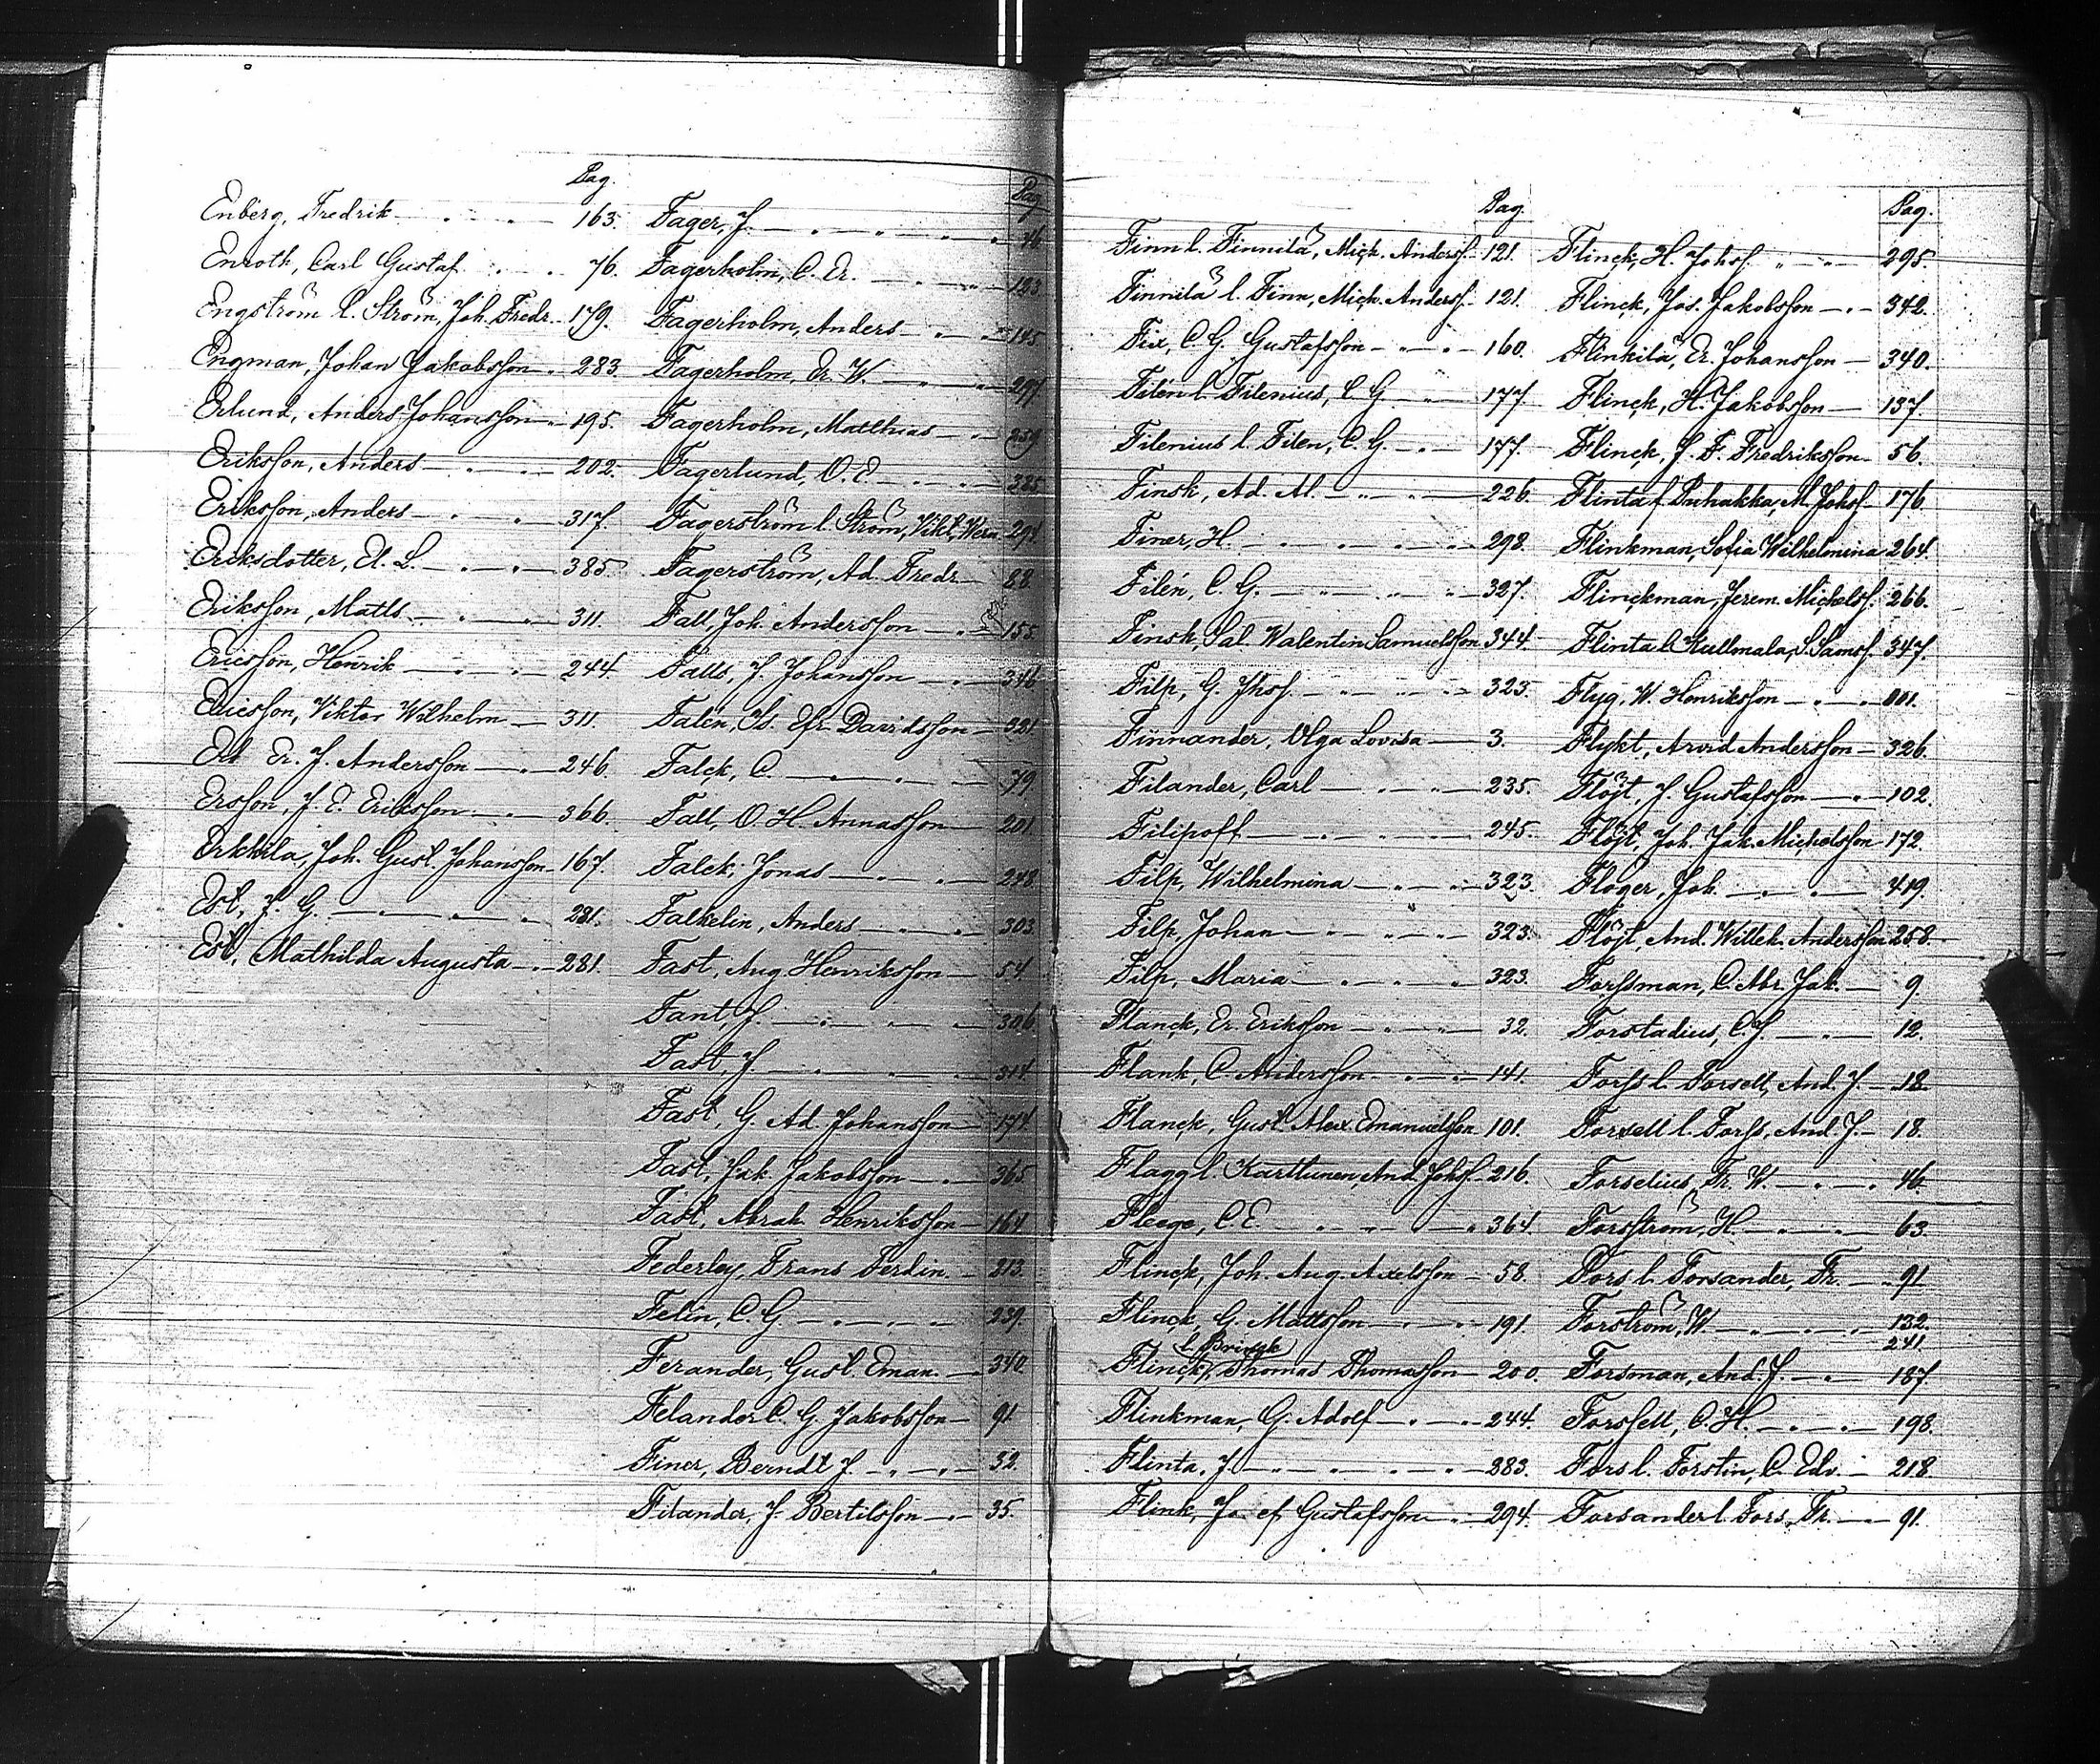 Pag.
Enberg, Fredrik 163.
Enroth, Carl Gustaf 76.
Engström l. Ström, Joh. Fredr. 179.
Engman, Johan Jakobsson 283
Erlund, Anders Johansson 195.
Eriksson, Anders 202.
Eriksson, Anders 317.
Eriksdotter, E. L. 385.
Eriksson, Matts 311.
Ericsson, Henrik 244.
Ericsson, Viktor Wilhelm 311.
Er. J. Andersson 246.
Ersson, J. E. Eriksson 366.
Erkkilä, Joh. Gust. Johansson 167.
Est, J. G. 281.
Est, Mathilda Augusta 281.
Pag.
Fager, J. 76
Fagerholm, C. Er. 123
Fagerholm, Anders 145
Fagerholm, Er. W. 297
Fagerholm, Matthias 259
Fagerlund, O. E. 385
Fagerström l. Ström, Vikt. Wern. 294
Fagerström, Ad. Fredr. 88
Fall, Joh. Andersson 155.
Falls, J. Johansson 346
Falén, Is. Efr. Davidsson 321
Falck, C. 79
Fall, O. H. Annasson 201
Falck, Jonas 248.
Falkelin, Anders 303
Fast, Aug. Henriksson 54
Fant, J. 306
Fast, J. 314
Fast, G. Ad. Johansson 174
Fast, Jak. Jakobsson 365
Fast, Abrah. Henriksson 164
Federley, Frans Ferdin. 213.
Felin, C. G. 239.
Ferander, Gust. Eman. 340
Felander C. G. Jakobsson 91
Finer, Berndt J. 32.
Filander, J. Bertilsson 35.
Pag.
Finn l. Finnilä, Mich. Anderss. 121.
Finnilä l. Finn, Mich. Anderss. 121.
Fix, C. G. Gustafsson 160.
Filén l. Filenius, C. G. 177.
Filenius l. Filen, C. G. 177.
Finsk, Ad. M. 226.
Finer, H. 298.
Filén, C. G. 327.
Finsk, Sal. Walentin Samuelsson 344.
Filp, G. Jhss. 323.
Finnander, Olga Lovisa 3.
Filander, Carl 235.
Filipoff 245.
Filp, Wilhelmina 323.
Filp, Johan 323.
Filp, Maria 323.
Flanck, Er. Eriksson 32.
Flank, C. Andersson 141.
Flanck, Gust. Alex. Emanuelsson 101.
Flagg l. Karttunen, And. Johss. 216.
Fleege, C. E. 364.
Flinck, Joh. Aug. Axelsson 58.
Flinck, G. Mattsson 191.
l. Brinck
Flinck, Thomas Thomasson 200.
Flinkman, G. Adolf 244.
Flinta, J. 283.
Flink, Jo ef Gustafsson 294.
Pag.
Flinck, H. Johss. 295.
Flinck, Jos. Jakobsson 342.
Flinkilä, Er. Johansson 340.
Flinck, H. Jakobsson 137.
Flinck, J. F. Fredriksson 56.
Flinta f. Puhakka, M. Johss. 176.
Flinkman, Sofia Wilhelmina 264.
Flinckman, Jerem. Michelss. 266.
Flinta l. Kullmala, S. Samss. 347.
Flyg, W. Henriksson 201.
Flykt, Arvid Andersson 326.
Flöjt, J. Gustafsson 102.
Flöjt, Joh. Jak. Michelsson 172.
Floger, Joh. 419.
Flöjt, And. Willeh. Andersson 258.
Forssman, C. Abr. Jak. 9.
Forstadius, C. J. 12.
Forss l. Forsell, And. J. 18
Forsell l. Forss, And. J. 18.
Forselius, Fr. W. 46.
Forsström, H. 63.
Fors l. Forsander, Fr. 91
Forström, W. 132.
241.
Forsman, And. J. 187
Forssell, C. H. 198.
Fors l. Forstin, C. Edv. 218
Forsander l. Fors, Fr. 91.